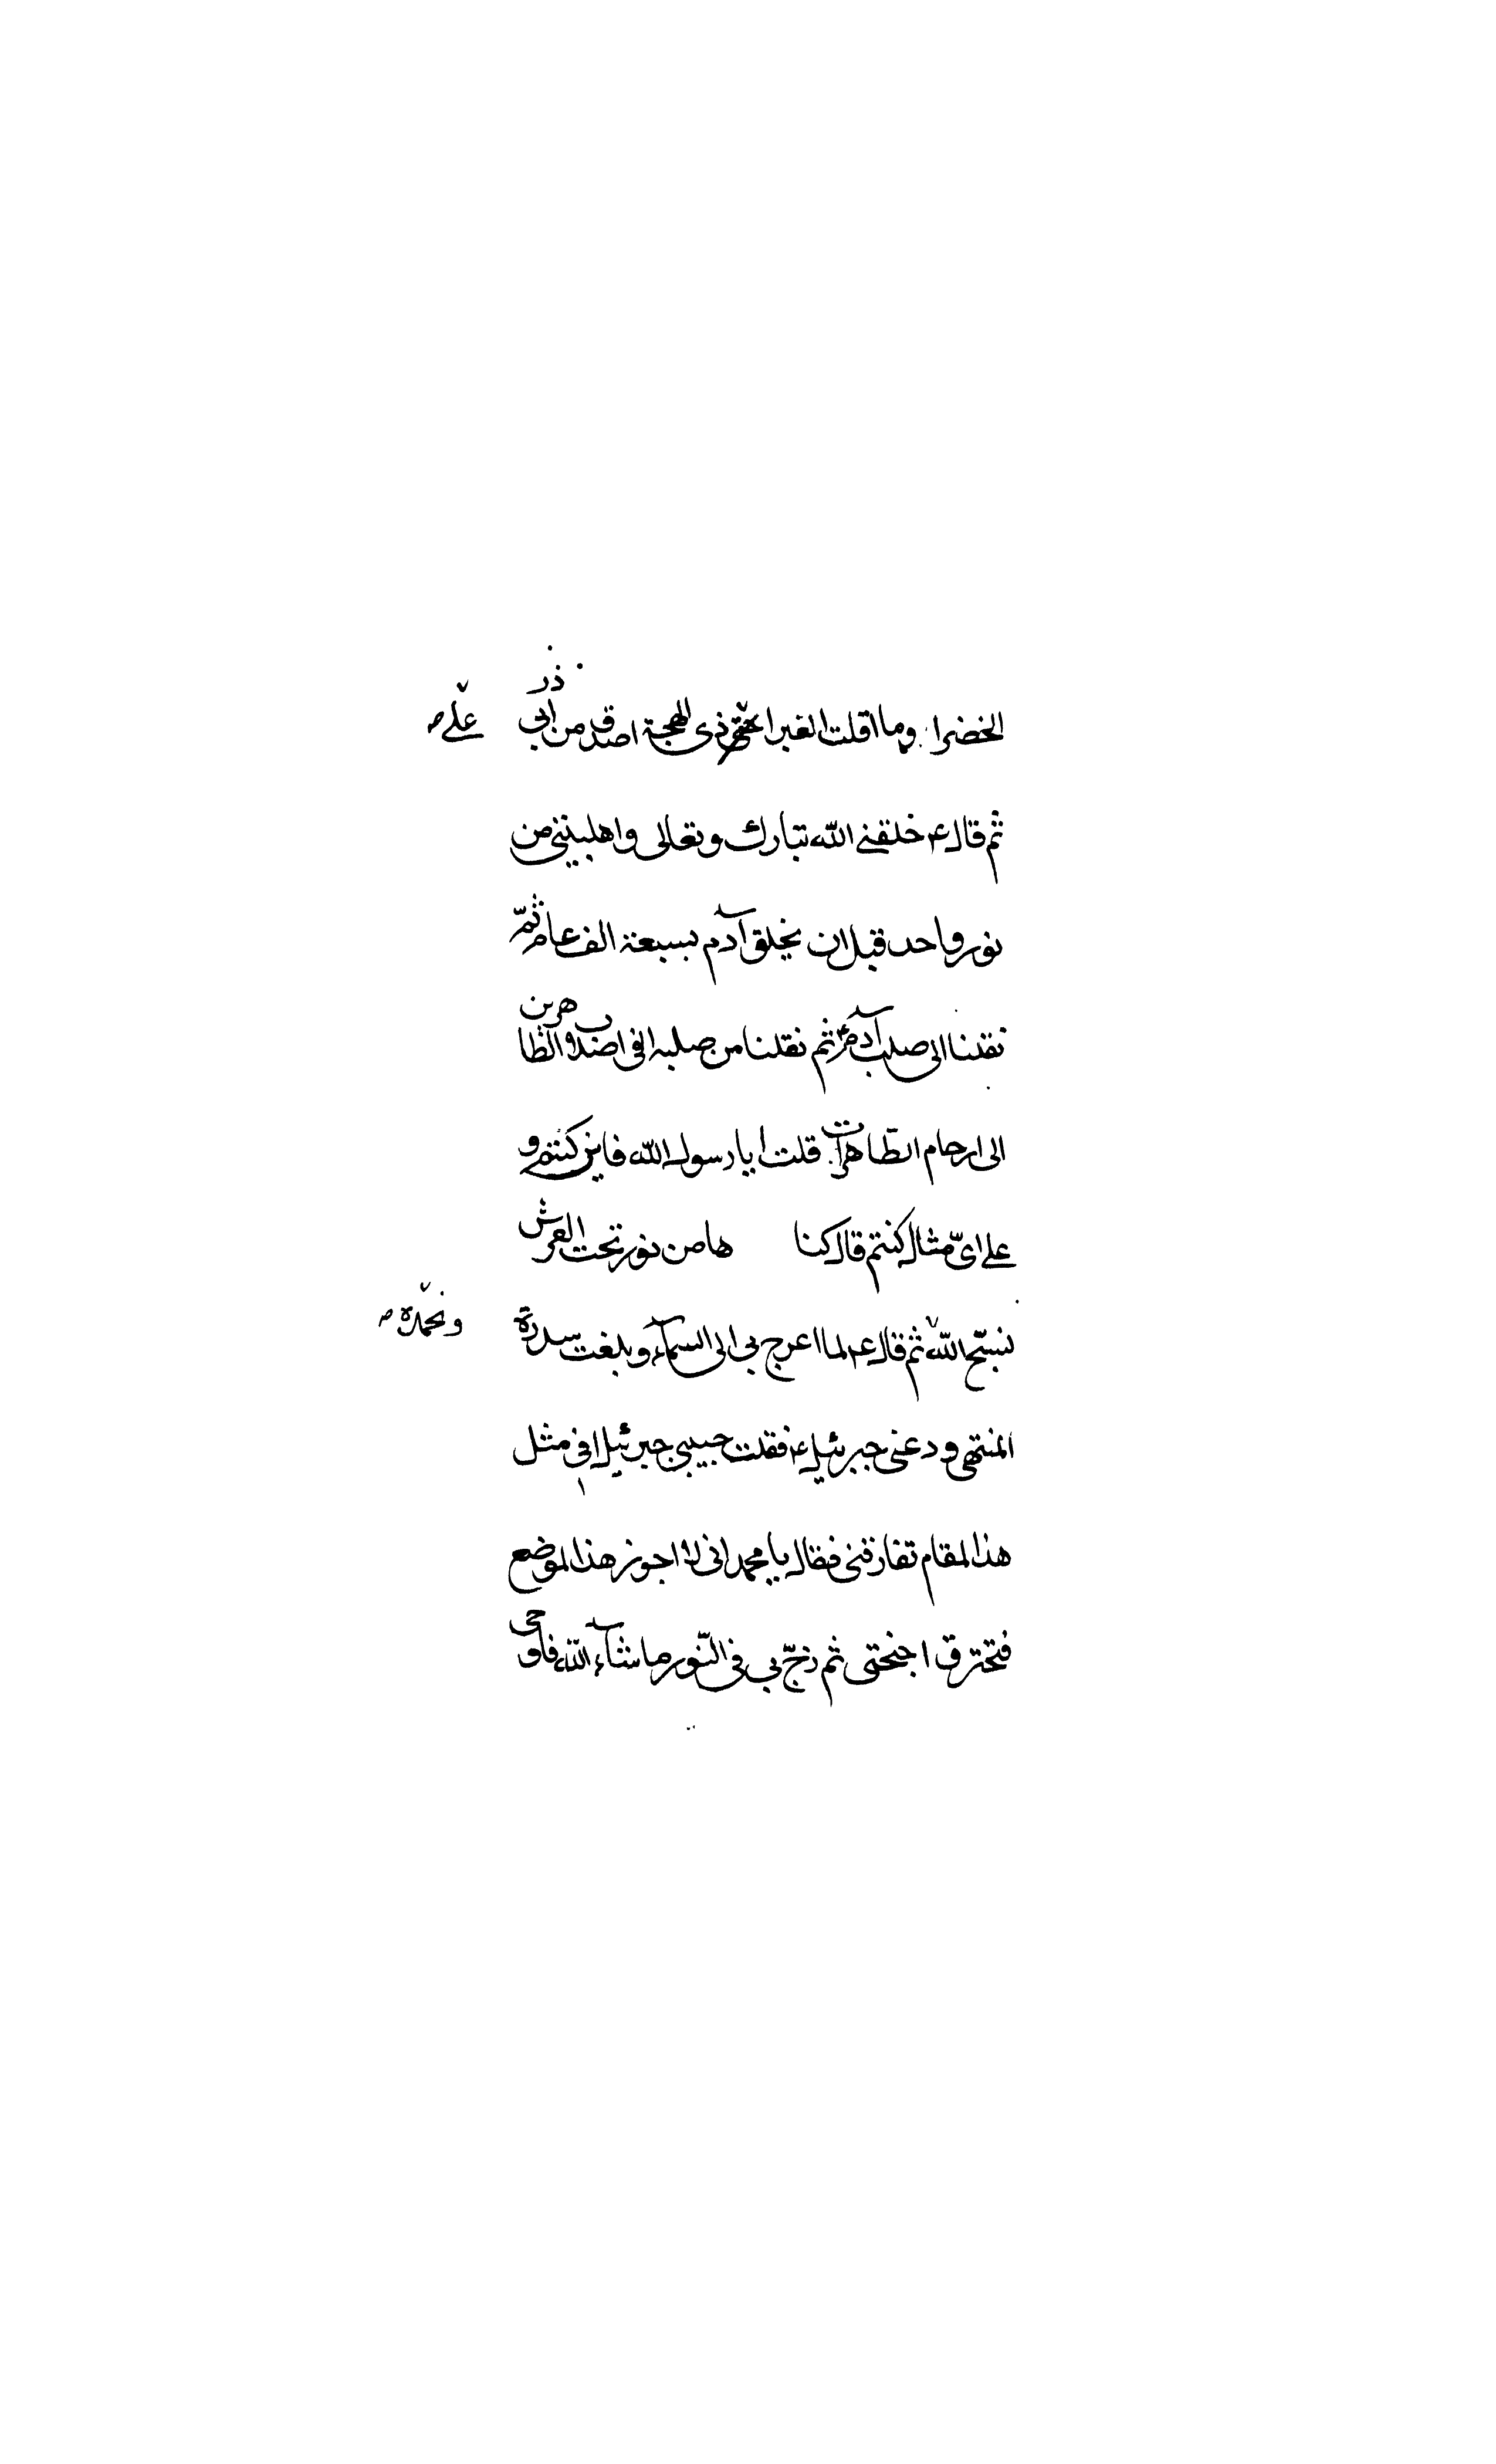 الخضرا وما اقلت الغبرا على ذى لهجة اصدق من ابى ذر
ثم قال ع خلقنى الله تبارك وتعالى واهلبيتى من
نور واحد قبل ان يخلق آدم بسبعة الف عام ثمّ
نقلنا الى صلب آدم ثم نقلنا من صلبه الى اصلاب الطاهرين
الى ارحام الطّاهرات قلت يا رسول الله فاين كنتم و
على اىّ مثال كنتم قال كنا ها من نور تحت العرش
نسبّح الله ثم قال ع لما اعرج بى الى السمآء وبلغت سدرة
ونحمّده ص
المنتهى ودعنى جبرئيل ع فقلت حبيبى جبرئيل افى مثل
هذا المقام تفارقنى فقال يا محمد انى لا اجوز هذا الموضع
فتحترق اجنحتى ثم زجّ بى فى النّور ما شآء الله فاوحى